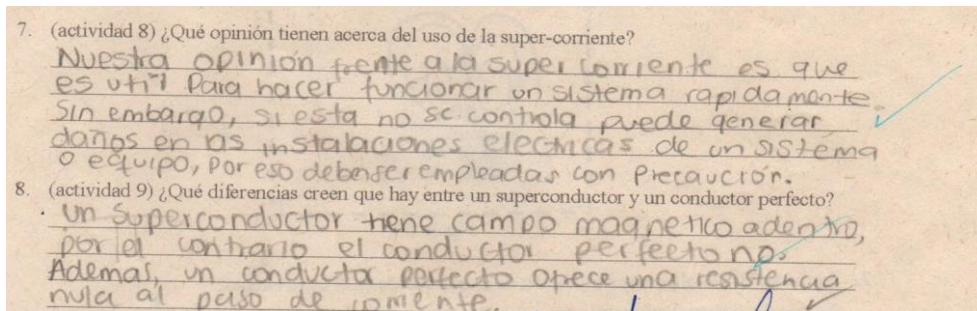 7. (actividad 8) ¿Qué opinión tienen acerca del uso de la super-corriente?
Nuestra opinión frente a la super corriente es que
es util para hacer funcionar un sistema rapidamente.
Sin embargo, si esta no se controla puede generar
daños en las instalaciones electricas de un sistema
o equipo, por eso deben ser empleadas con precaución.
8. (actividad 9) ¿Qué diferencias creen que hay entre un superconductor y un conductor perfecto?
un superconductor tiene campo magnetico adentro,
por el contrario el conductor perfecto no.
Ademas, un conductor perfecto ofrece una resistencia
nula al paso de corriente.